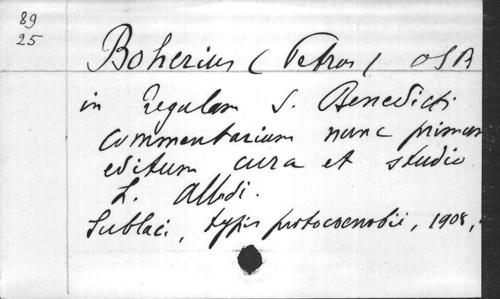 89
25
Boherius (Petrus) OSB
in Regulam S. Benedicti
commentarium nunc primum
editum cura et studio
L. Allodi.
Sublaci, typis protocoenobii, 1908,